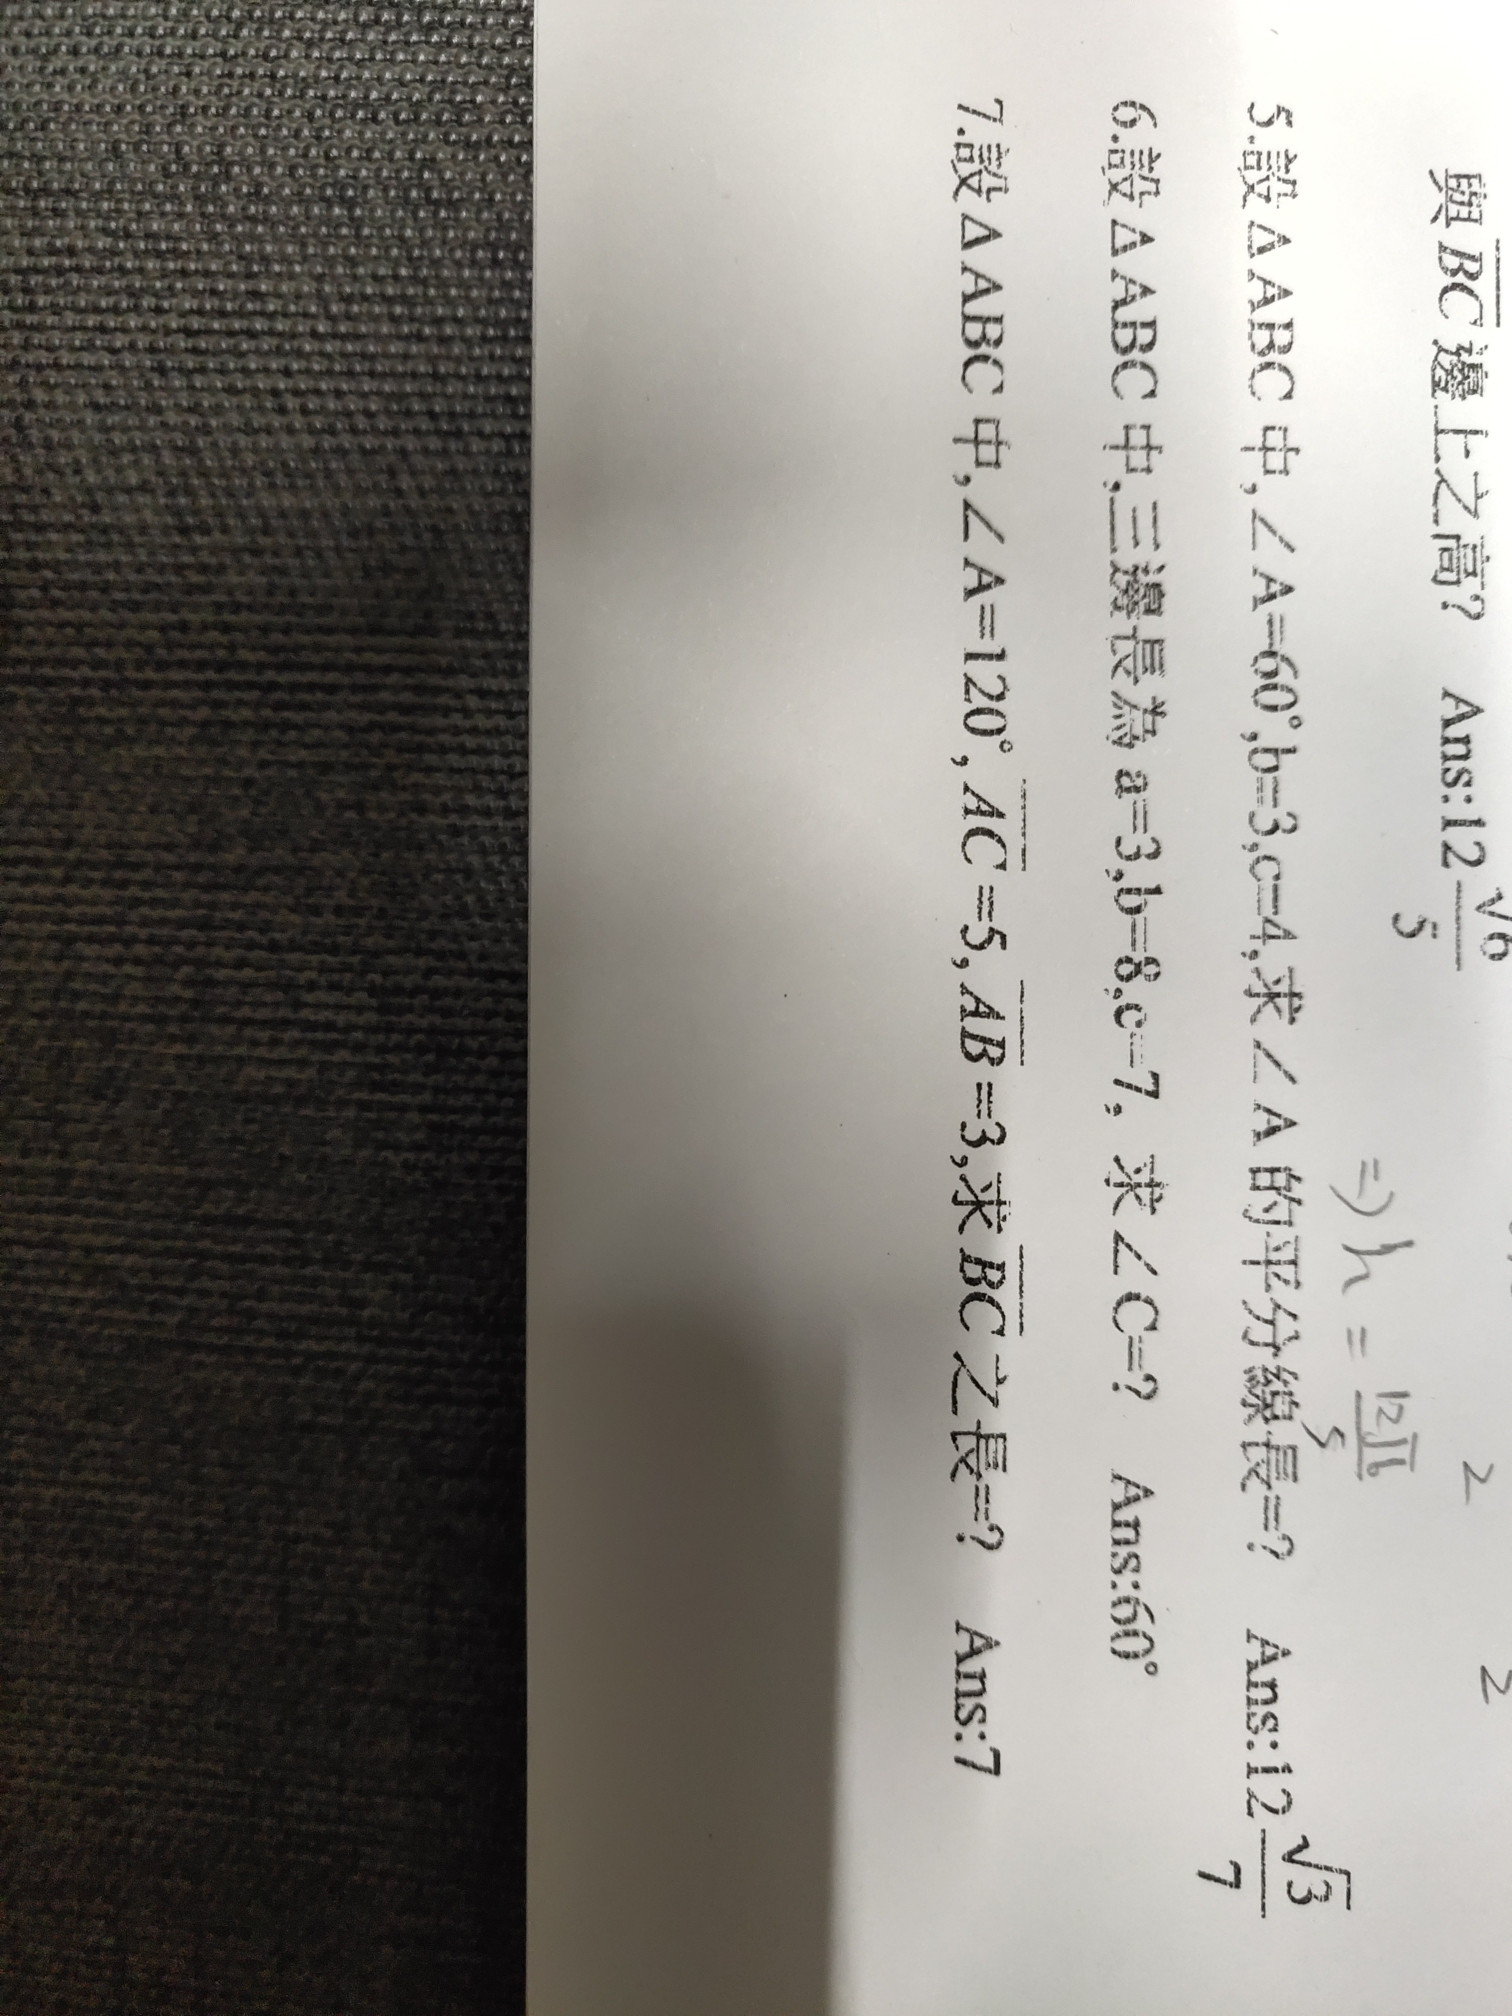 與 BC 邊上之高? Ans:12 √6/5
⇒ h = 12√6/5
5.設 Δ ABC 中,∠A=60°,b=3,c=4,求∠A 的平分線長=? Ans:12 √3/7
6.設 Δ ABC 中,三邊長為 a=3,b=8,c=7, 求∠C=? Ans:60°
7.設 Δ ABC 中,∠A=120°, AC =5, AB =3,求 BC 之長=? Ans:7